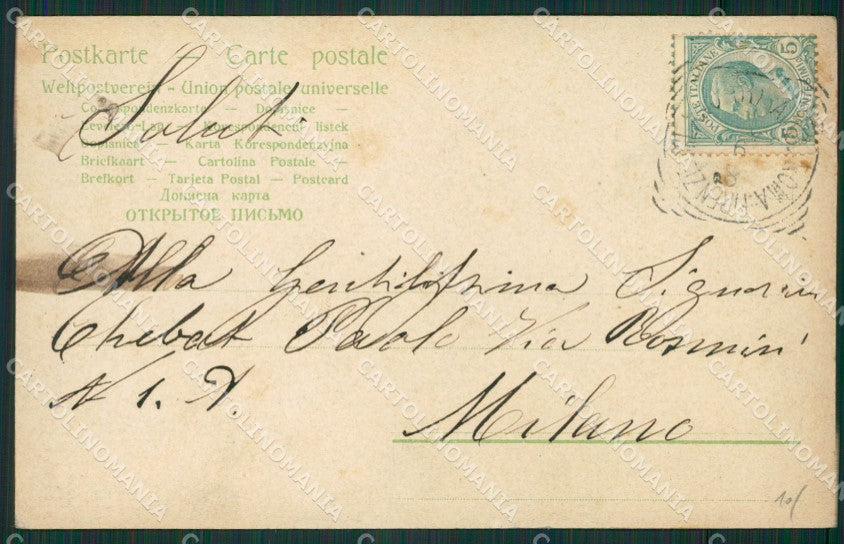 Postkarte – Carte postale
Weltpostverein – Union postale universelle
Correspondenzkarte – Dopisnice –
Levelező-Lap – Korespondencni listek
Dopisnica – Karta Korespondencyjna
Briefkaart – Cartolina Postale –
Brefkort – Tarjeta Postal – Postcard
Дописна карта
ОТКРЫТОЕ ПИСЬМО
Saluti
5 POSTE ITALIANE 5
ROMA FIRENZE
Alla Gentilissima Signora
Chebat Paolo Via Rosmini
N 1. A.
Milano
CARTOLINOMANIA